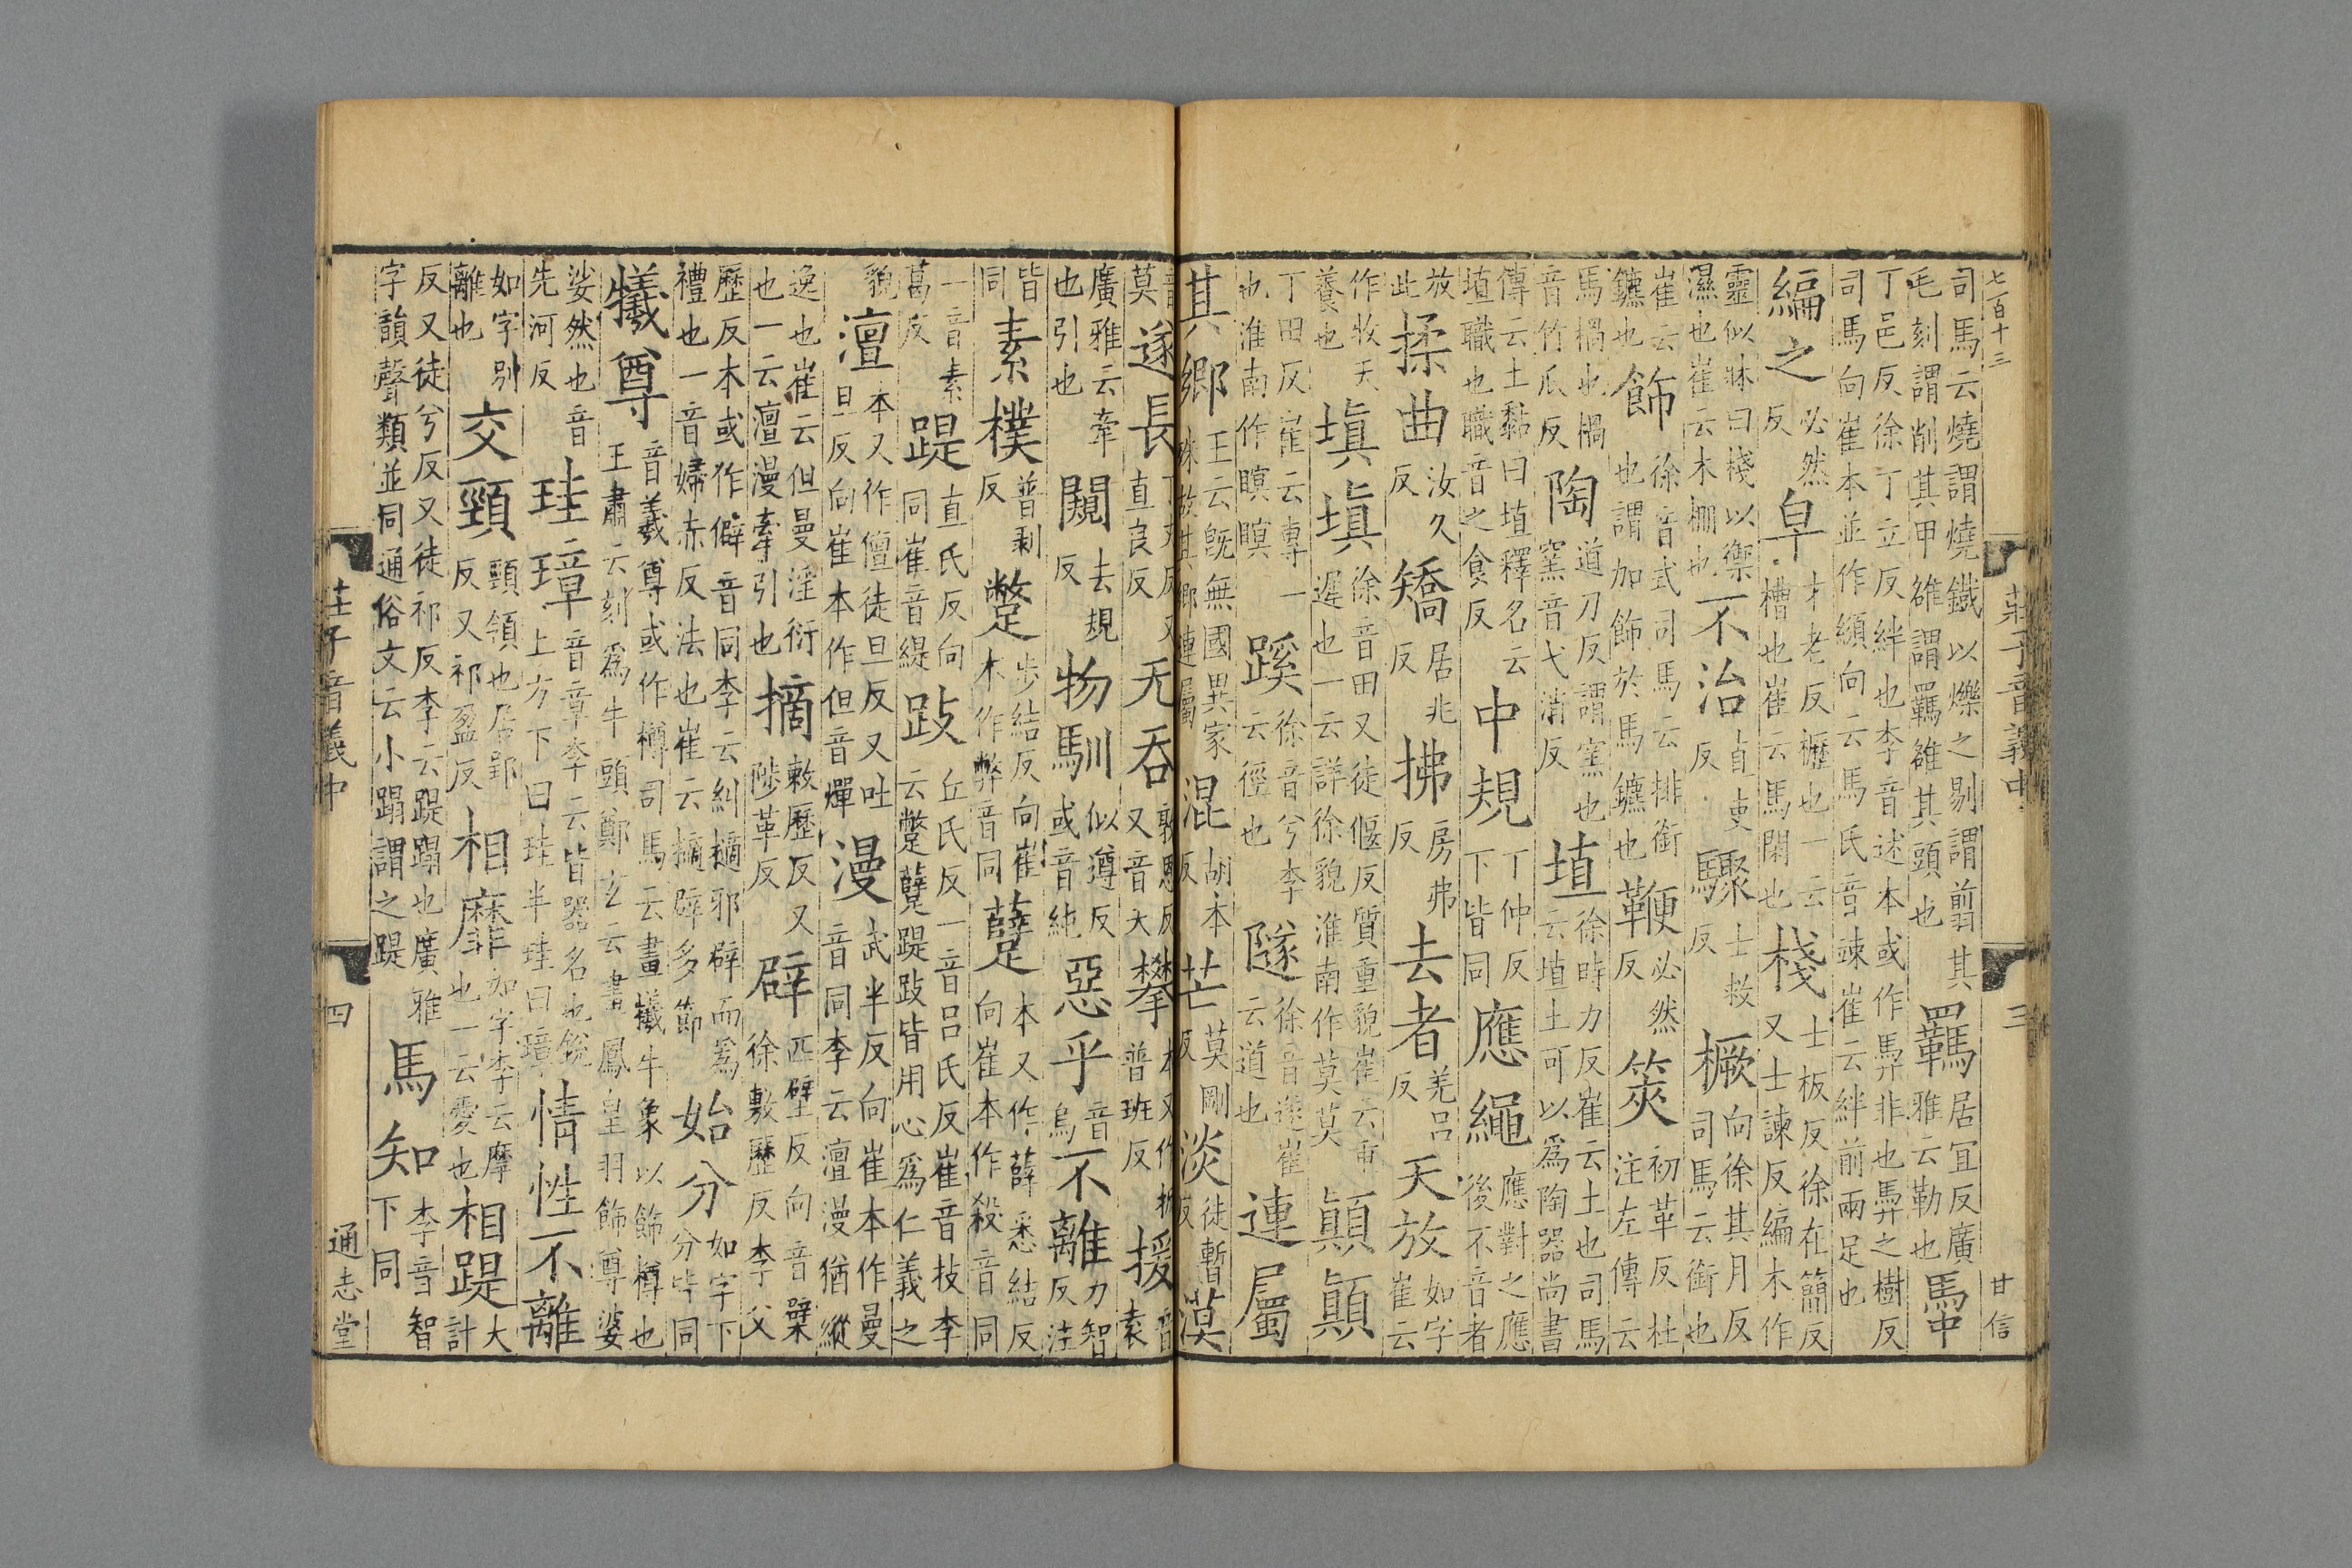 七百十三 莊子音義中 三 甘信
司馬云燒謂燒鐵以爍之剔謂翦其毛刻謂削其甲雒謂羈雒其頭也 羈 居宜反廣雅云勒也 馽
丁邑反徐丁立反絆也李音述本或作馵非也馵之樹反司馬向崔本並作 向云馬氏音竦崔云絆前兩足也
編之 必然反 皁 才老反櫪也一云槽也崔云馬閑也 棧 士板反徐在簡反又士諫反編木作
靈似牀曰棧以禦濕也崔云木棚也 不治 直吏反 驟 士救反 橛 向徐其月反司馬云銜也
崔云鑣也 飾 徐音式司馬云排銜也謂加飾於馬鑣也 鞭 必然反 筴 初革反杜注左傳云
馬檛也檛音竹瓜反 陶 道刀反謂窯也窯音弋消反 埴 徐時力反崔云土也司馬云埴土可以爲陶器尚書
傳云土黏曰埴釋名云埴職也職音之食反 中規 丁仲反下皆同 應繩 應對之應後不音者
放此 揉曲 汝久反 矯 居兆反 拂 房弗反 去者 羌呂反 天放 如字崔云
作牧天養也 塡塡 徐音田又徒偃反質重貌崔云重遲也一云詳徐貌淮南作莫莫 顚顚
丁田反崔云專一也淮南作瞑瞑 蹊 徐音兮李云徑也 隧 徐音遂崔云道也 連屬
其鄉 王云旣無國異家殊故其鄉連屬 混 胡本反 芒 莫剛反 淡 徒暫反 漠
音莫 遂長 丁丈反又直良反 无吞 敦恩反又音天 攀 本又作扳普班反 援 音袁
廣雅云牽也引也 闚 去規反 物馴 似遵反或音純 惡乎 音烏 不離 力智反注
皆同 素樸 普剥反 蹩 步結反向崔本作弊音同 躠 本又作薛悉結反向崔本作殺音同
一音素葛反 踶 直氏反向同崔音緹 跂 丘氏反一音呂氏反崔音技李云蹩躠踶跂皆用心爲仁義之
貌 澶 本又作儃徒旦反又吐旦反向崔本作但音燀 漫 武半反向崔本作曼音同李云澶漫猶縱
逸也崔云但曼淫衍也一云澶漫牽引也 摘 敕歷反又陟革反 辟 匹壁反向音檗徐敷歷反李父
歷反本或作僻音同李云糾擿邪辟而爲禮也一音婦赤反法也崔云擿辟多節 始分 如字下分皆同
犧尊 音羲尊或作樽司馬云畫犧牛象以飾樽也王肅云刻爲牛頭鄭玄云畫鳳皇羽飾尊婆
娑然也音先河反 珪璋 音章李云皆器名也銳上方下曰珪半珪曰璋 情性不離
如字別離也 交頸 頸領也居郢反又祁盈反 相靡 如字李云摩也一云愛也 相踶 大計
反又徒兮反又徒祁反李云踶蹋也廣雅字韻聲類並同通俗文云小蹋謂之踶 馬知 李音智下同
莊子音義中 四 通志堂